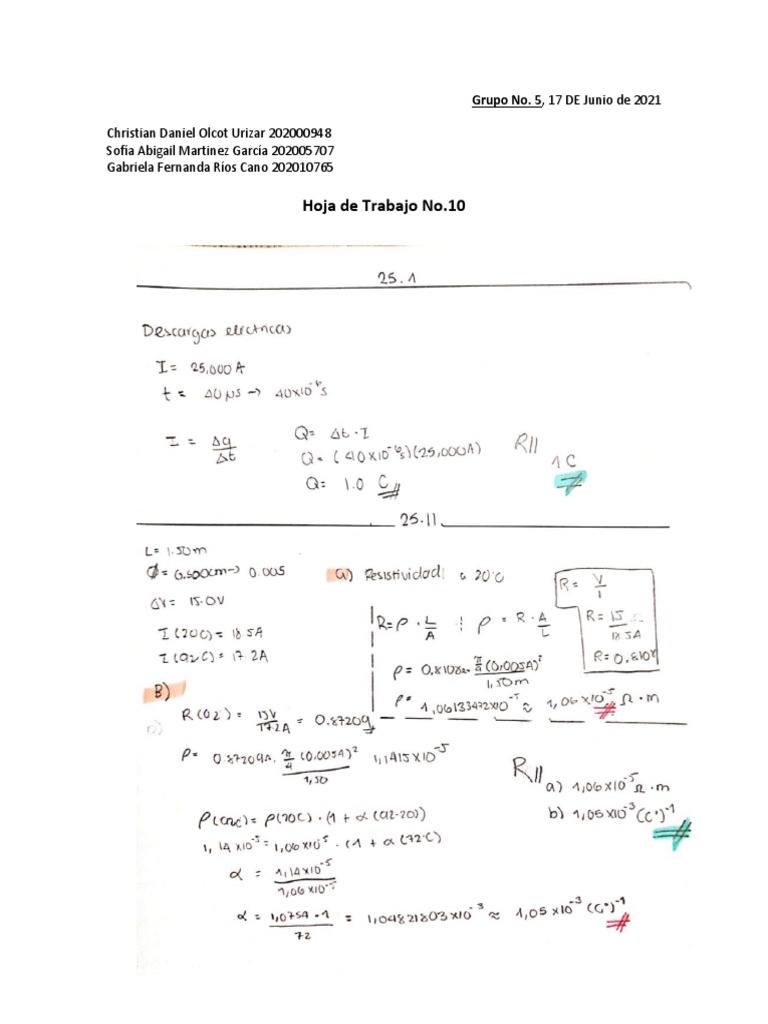 Grupo No. 5, 17 DE Junio de 2021
Christian Daniel Olcot Urizar 202000948
Sofía Abigail Martinez García 202005707
Gabriela Fernanda Ríos Cano 202010765
Hoja de Trabajo No.10
25.1
Descargas electricas
I= 25,000 A
t = 40 μs → 40x10⁻⁶s
I = Δq/Δt
Q= Δt·I
Q= (40x10⁻⁶s)(25,000A)
Q= 1.0 C
R// 1 C
25.11
L= 1.50m
Ø= 0.500cm→ 0.005
ΔV= 15.0V
I(20C)= 18.5A
I(92C)= 17.2A
a) Resistividad a 20°C
R= ρ · L/A
ρ = R · A/L
ρ= 0.8108Ω · π/4 (0,005A)² / 1,50m
ρ= 1,06133472x10⁻⁵ ≈ 1,06x10⁻⁵ Ω·m
R= V/I
R= 15 / 18.5A
R= 0.8108
B)
R(92°) = 15V/17.2A = 0.8720
ρ= 0.8720Ω · π/4 (0.005A)² / 1,50 1,1415x10⁻⁵
ρ(92C)= ρ(20C) · (1 + α(92-20))
1,14x10⁻⁵ = 1,06x10⁵ · (1 + α(72°C)
α = 1,14x10⁻⁵ / 1,06x10⁻⁵
α = 1,0754-1 / 72 = 1,04821803x10⁻³ ≈ 1,05x10⁻³ (C°)⁻¹
R//
a) 1,06x10⁻⁵ Ω·m
b) 1,05x10⁻³ (C°)⁻¹